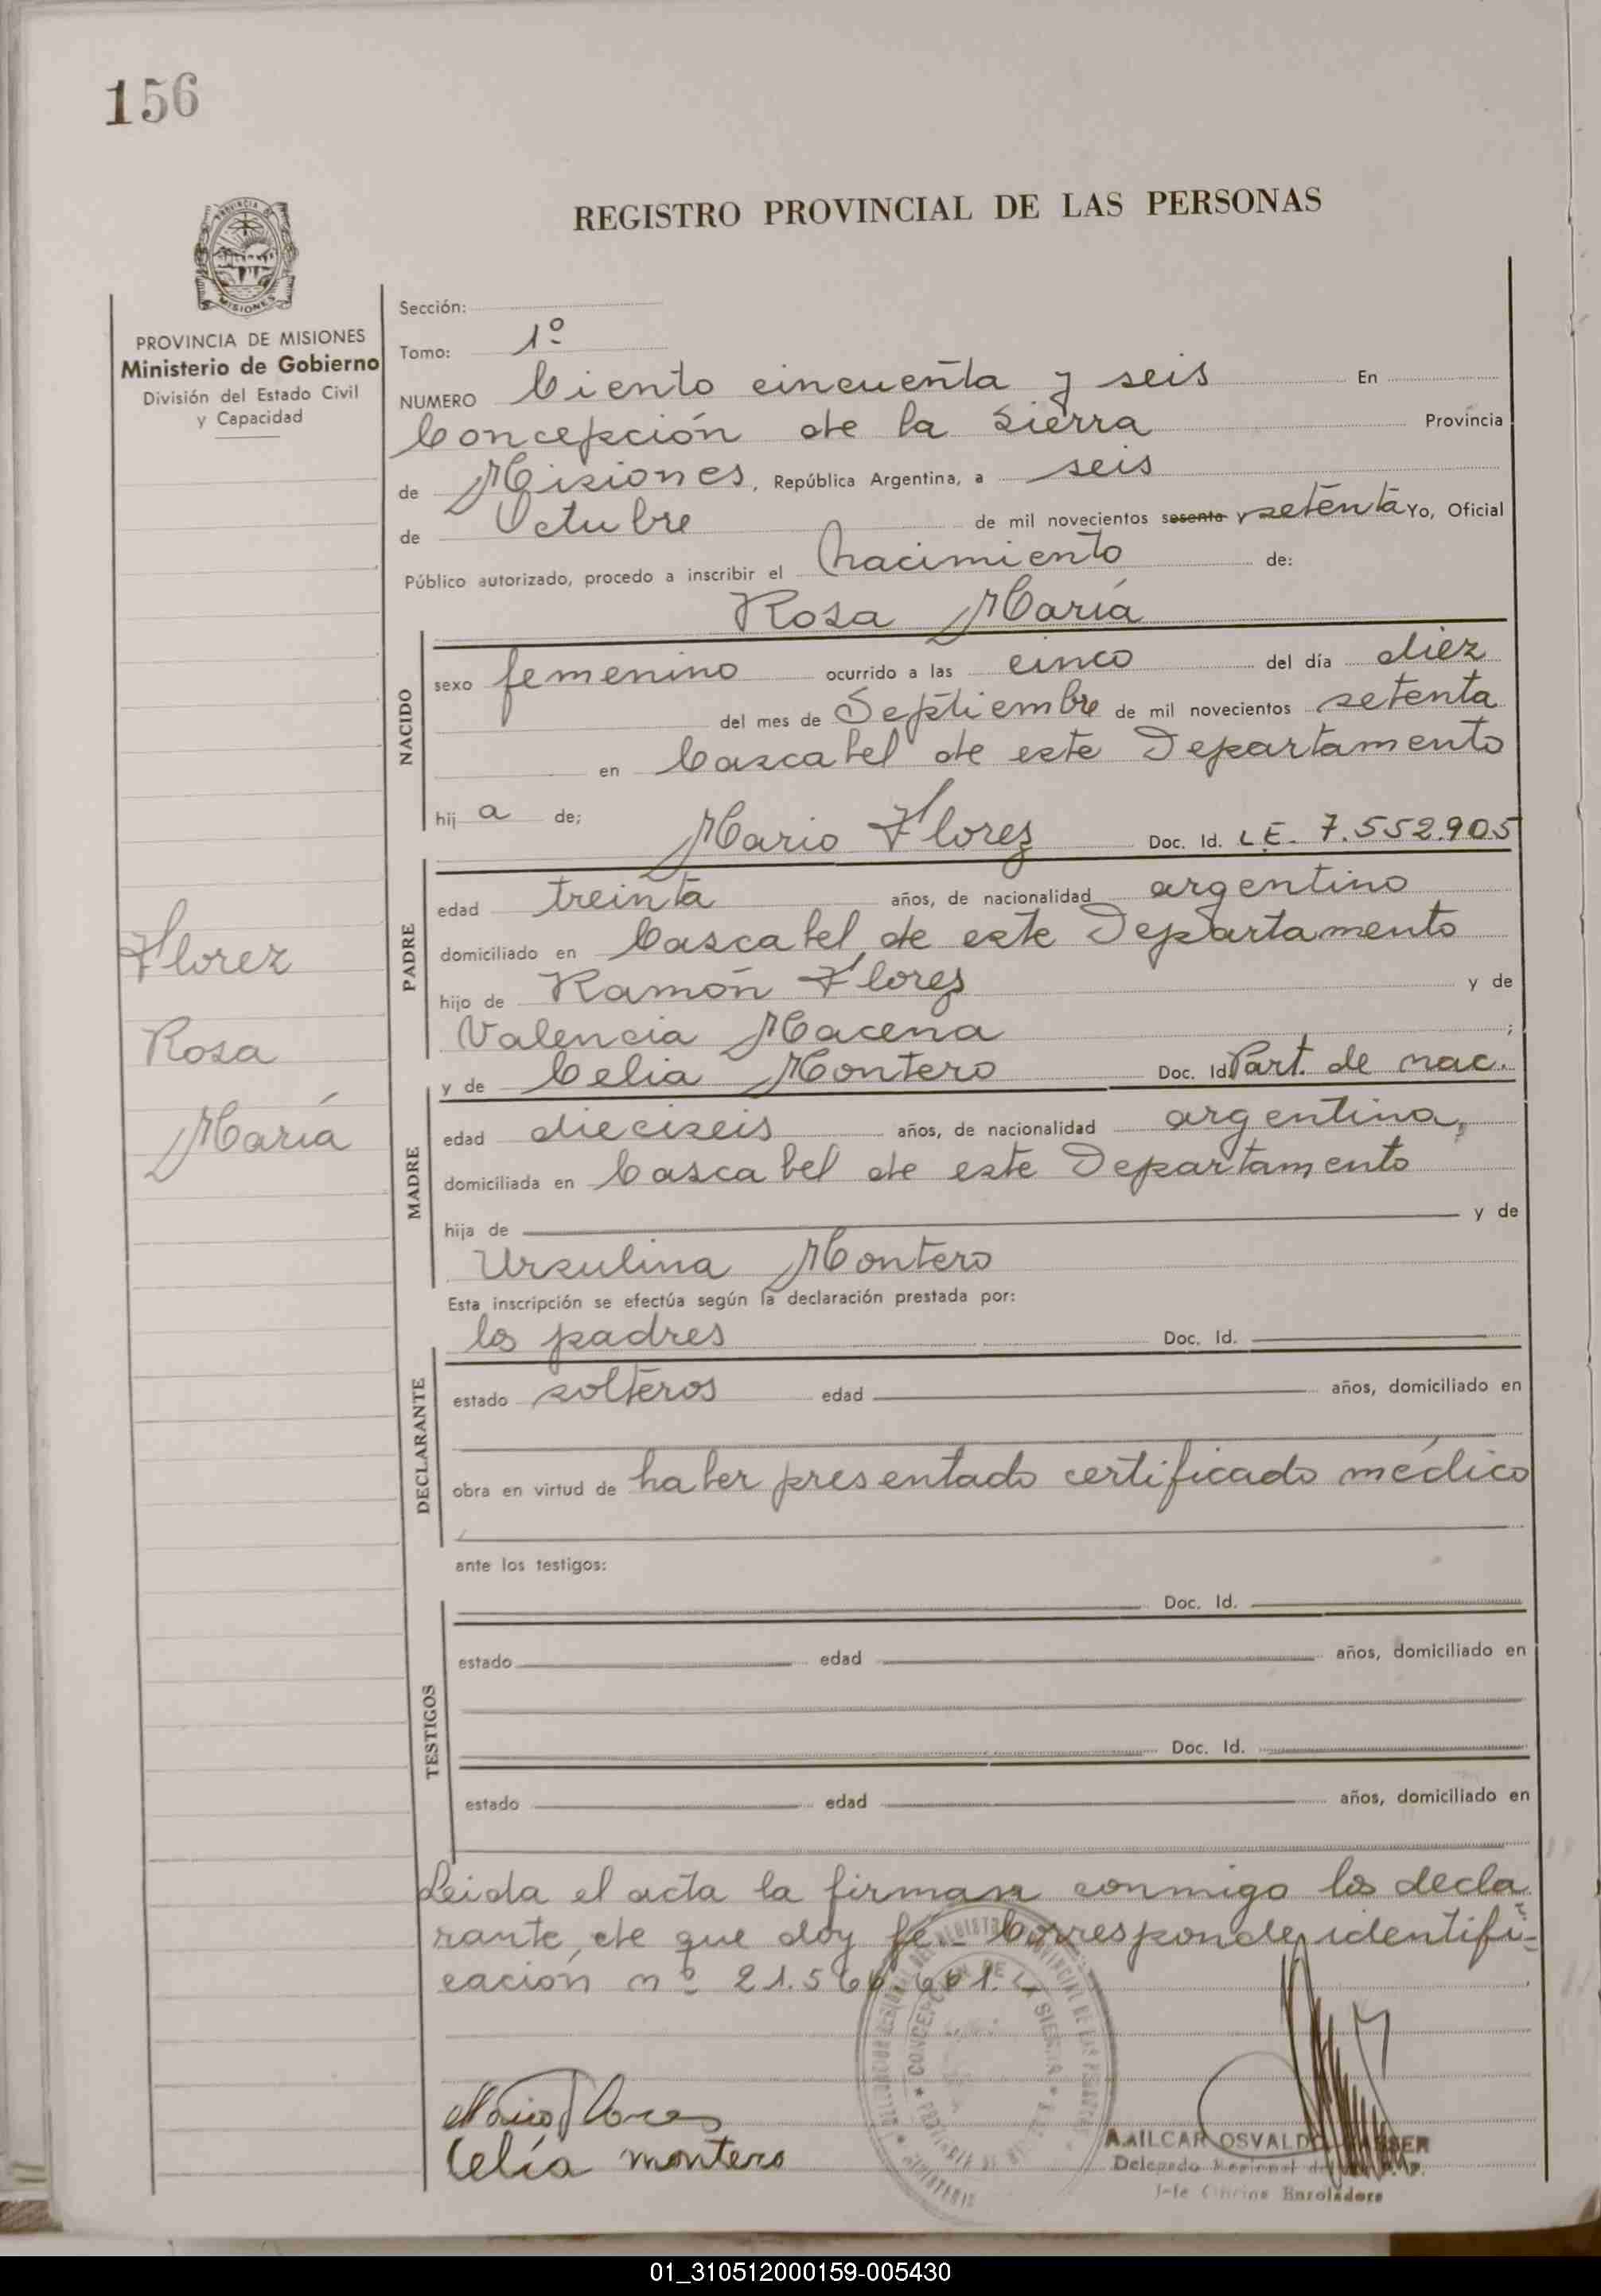 156
REGISTRO PROVINCIAL DE LAS PERSONAS
MISIONES
PROVINCIA DE MISIONES
Ministerio de Gobierno
División del Estado Civil
y Capacidad
Sección:
Tomo: 1º
NUMERO Ciento cincuenta y seis En
Concepción de la Sierra Provincia
de Misiones, República Argentina, a seis
de Octubre de mil novecientos sesenta y setenta Yo, Oficial
Público autorizado, procedo a inscribir el nacimiento de:
Rosa María
NACIDO
sexo femenino ocurrido a las cinco del día diez
del mes de Septiembre de mil novecientos setenta
en Cascabel de este Departamento
hij a de; Mario Florez Doc. Id. L.E. 7.552.905
PADRE
edad treinta años, de nacionalidad argentino
domiciliado en Cascabel de este Departamento
hijo de Ramón Florez y de
Valencia Macena ;
y de Celia Montero Doc. Id Part. de nac.
MADRE
edad dieciseis años, de nacionalidad argentina,
domiciliada en Cascabel de este Departamento
hija de y de
Ursulina Montero
Florez
Rosa
María
Esta inscripción se efectúa según la declaración prestada por:
los padres Doc. Id.
DECLARANTE
estado solteros edad años, domiciliado en
obra en virtud de haber presentado certificado médico
ante los testigos:
TESTIGOS
Doc. Id.
estado edad años, domiciliado en
Doc. Id.
estado edad años, domiciliado en
Leida el acta la firman conmigo los decla
rante, de que doy fé.- Corresponde identifi-
cación nº 21.566.601.
CONCEPCION DE LA SIERRA
Mario Flores
Celía montero
OSVALDO
Delegado Regional
Jefe Oficina Enroladora
01_310512000159-005430